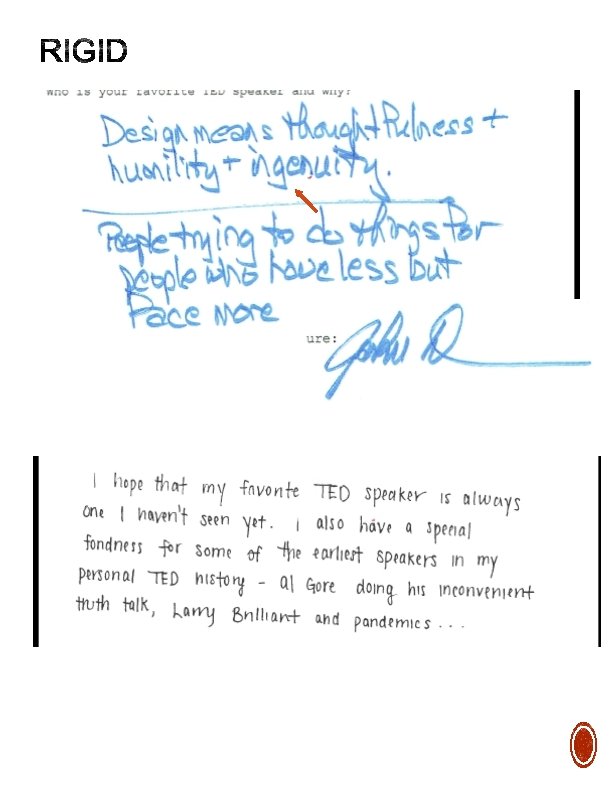 RIGID
Who is your favorite TED speaker and why?
Design means thoughtfulness +
humility + ingenuity.
People trying to do things for
people who have less but
face more
ure:
I hope that my favorite TED speaker is always
one I haven't seen yet. I also have a special
fondness for some of the earliest speakers in my
personal TED history - al Gore doing his inconvenient
truth talk, Larry Brilliant and pandemics...